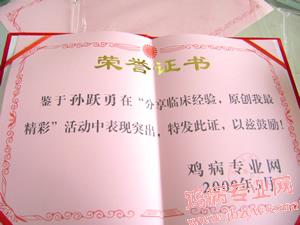 荣誉证书
鉴于孙跃勇在“分享临床经验，原创我最
精彩”活动中表现突出，特发此证，以兹鼓励！
鸡病专业网
鸡病专业网